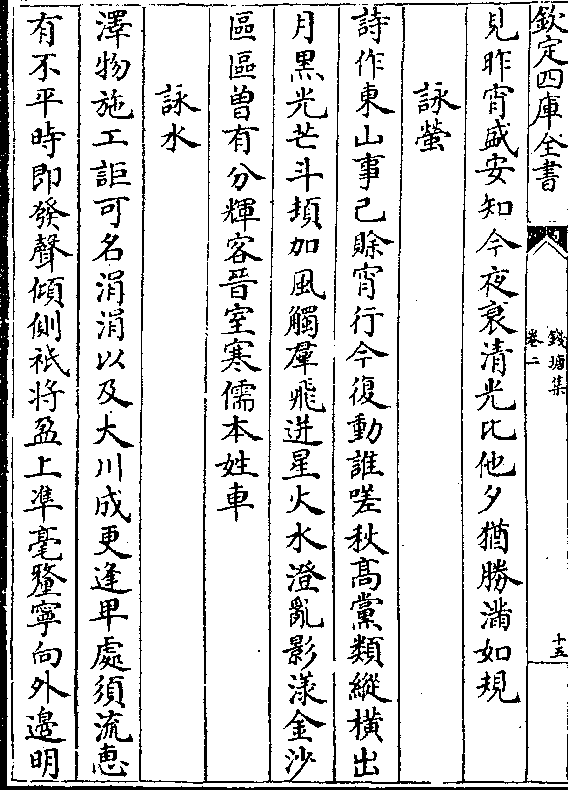 欽定四庫全書
錢塘集
卷二
十五
見昨宵盛安知今夜衰清光比他夕猶勝滿如規
詠螢
詩作東山事已賒宵行今復動誰嗟秋髙黨類縱横出
月黒光芒斗頓加風觸羣飛迸星火水澄亂影漾金沙
區區曽有分輝客晉室寒儒本姓車
詠水
澤物施工詎可名涓涓以及大川成更逢卑處須流恵
有不平時即發聲傾側祇將盈上凖毫釐寧向外邉明